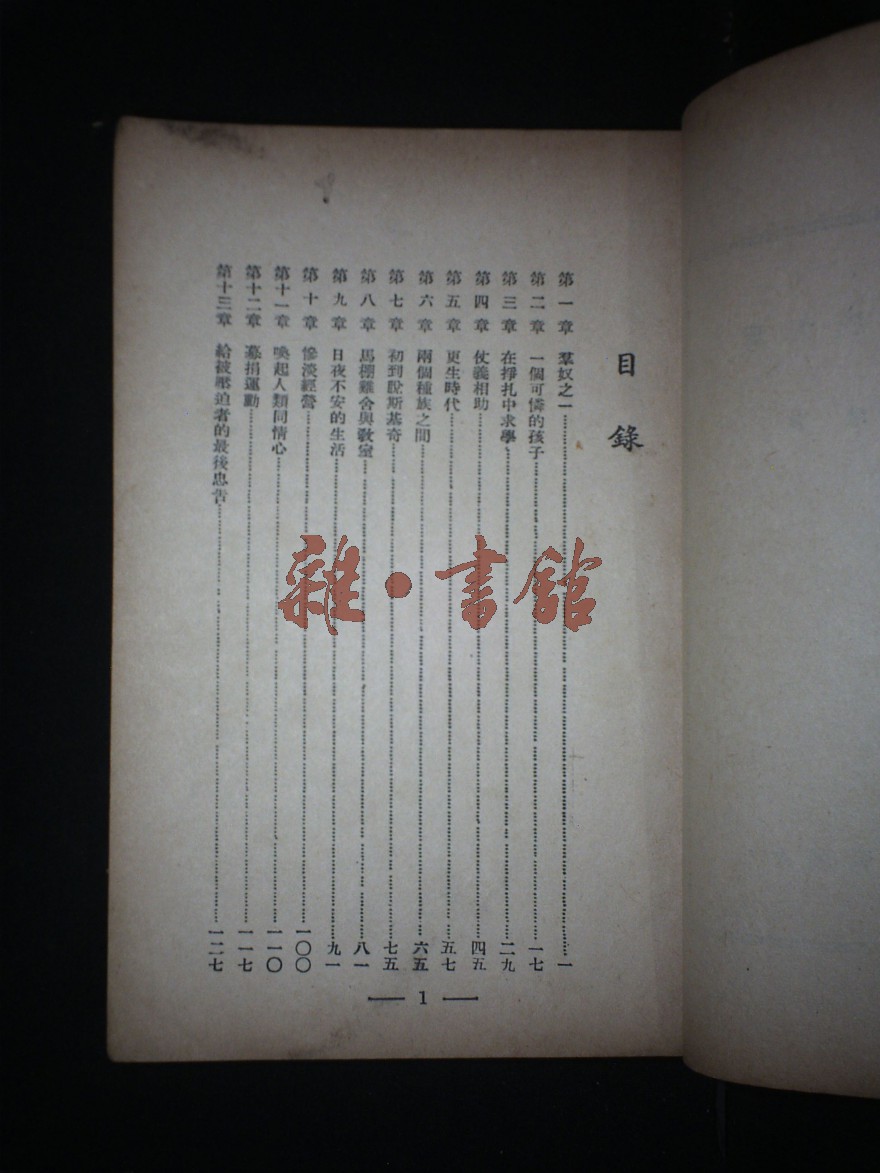 目錄
第一章 羣奴之一……一
第二章 一個可憐的孩子……一七
第三章 在掙扎中求學……二九
第四章 仗義相助……四五
第五章 更生時代……五七
第六章 兩個種族之間……六五
第七章 初到脫斯基奇……七五
第八章 馬棚雞舍與教室……八一
第九章 日夜不安的生活……九一
第十章 慘淡經營……一〇〇
第十一章 喚起人類同情心……一一〇
第十二章 募捐運動……一一七
第十三章 給被壓迫者的最後忠告……一二七
1
雜·書館